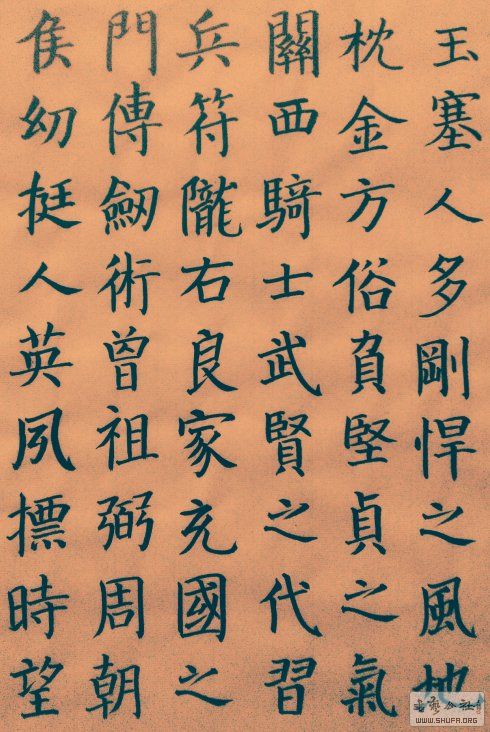 玉塞人多剛悍之風地
枕金方俗負堅貞之氣
關西騎士武賢之代習
兵符隴右良家充國之
門傳劒術曾祖弼周朝
矦幼挺人英夙標時望
书艺公社
WWW.SHUFA.ORG